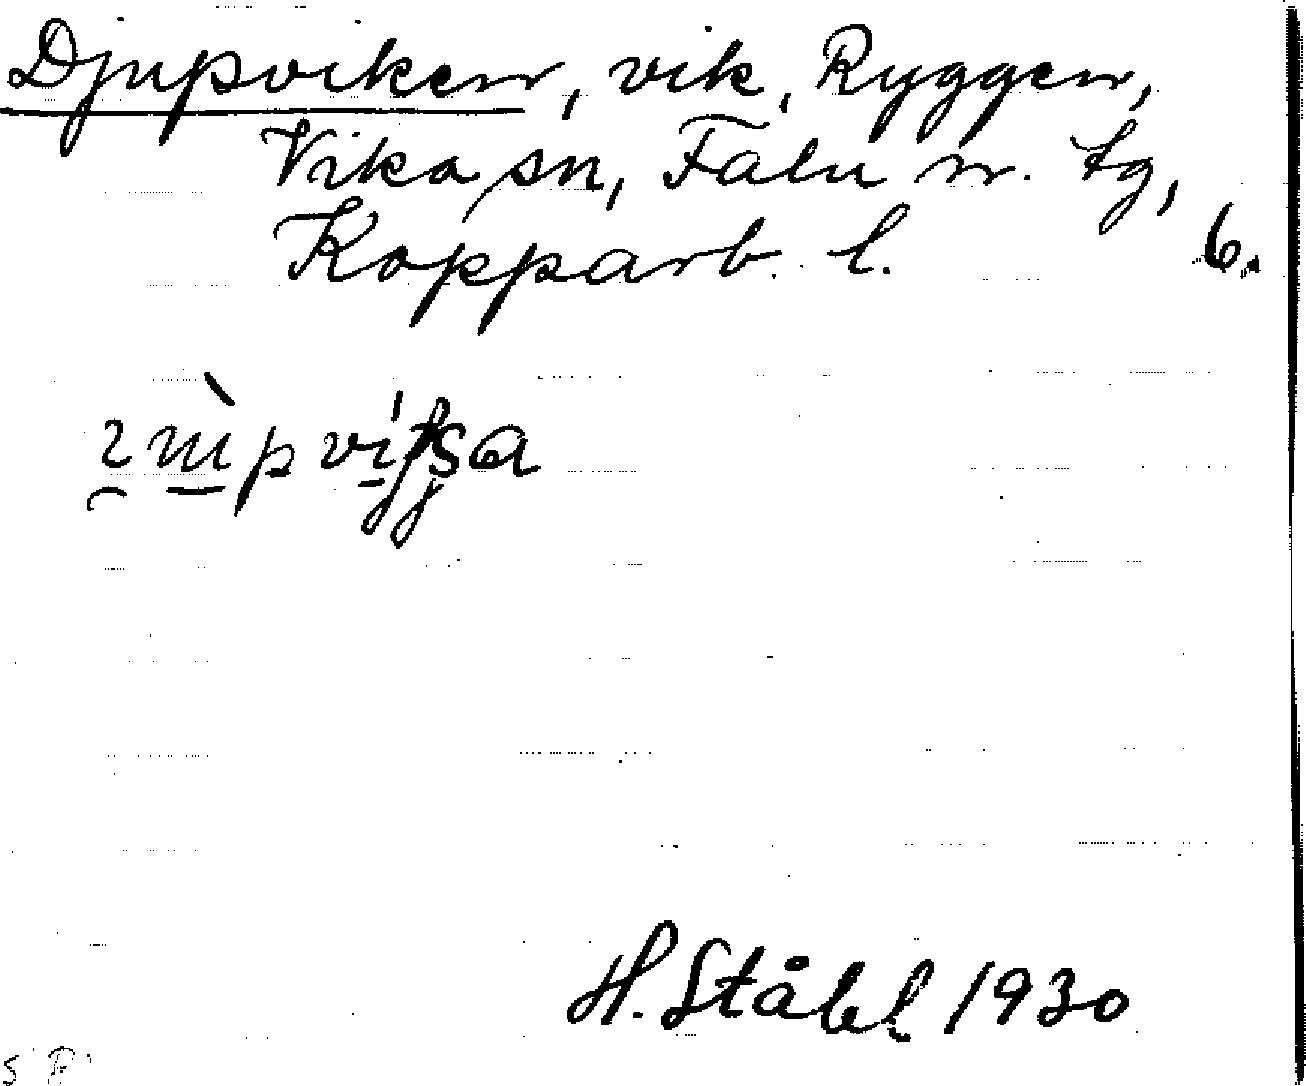 Djupviken, vik, Ryggen,
Vika sn, Falu n. tg,
Kopparb. l. 6.
H. Ståhl 1930